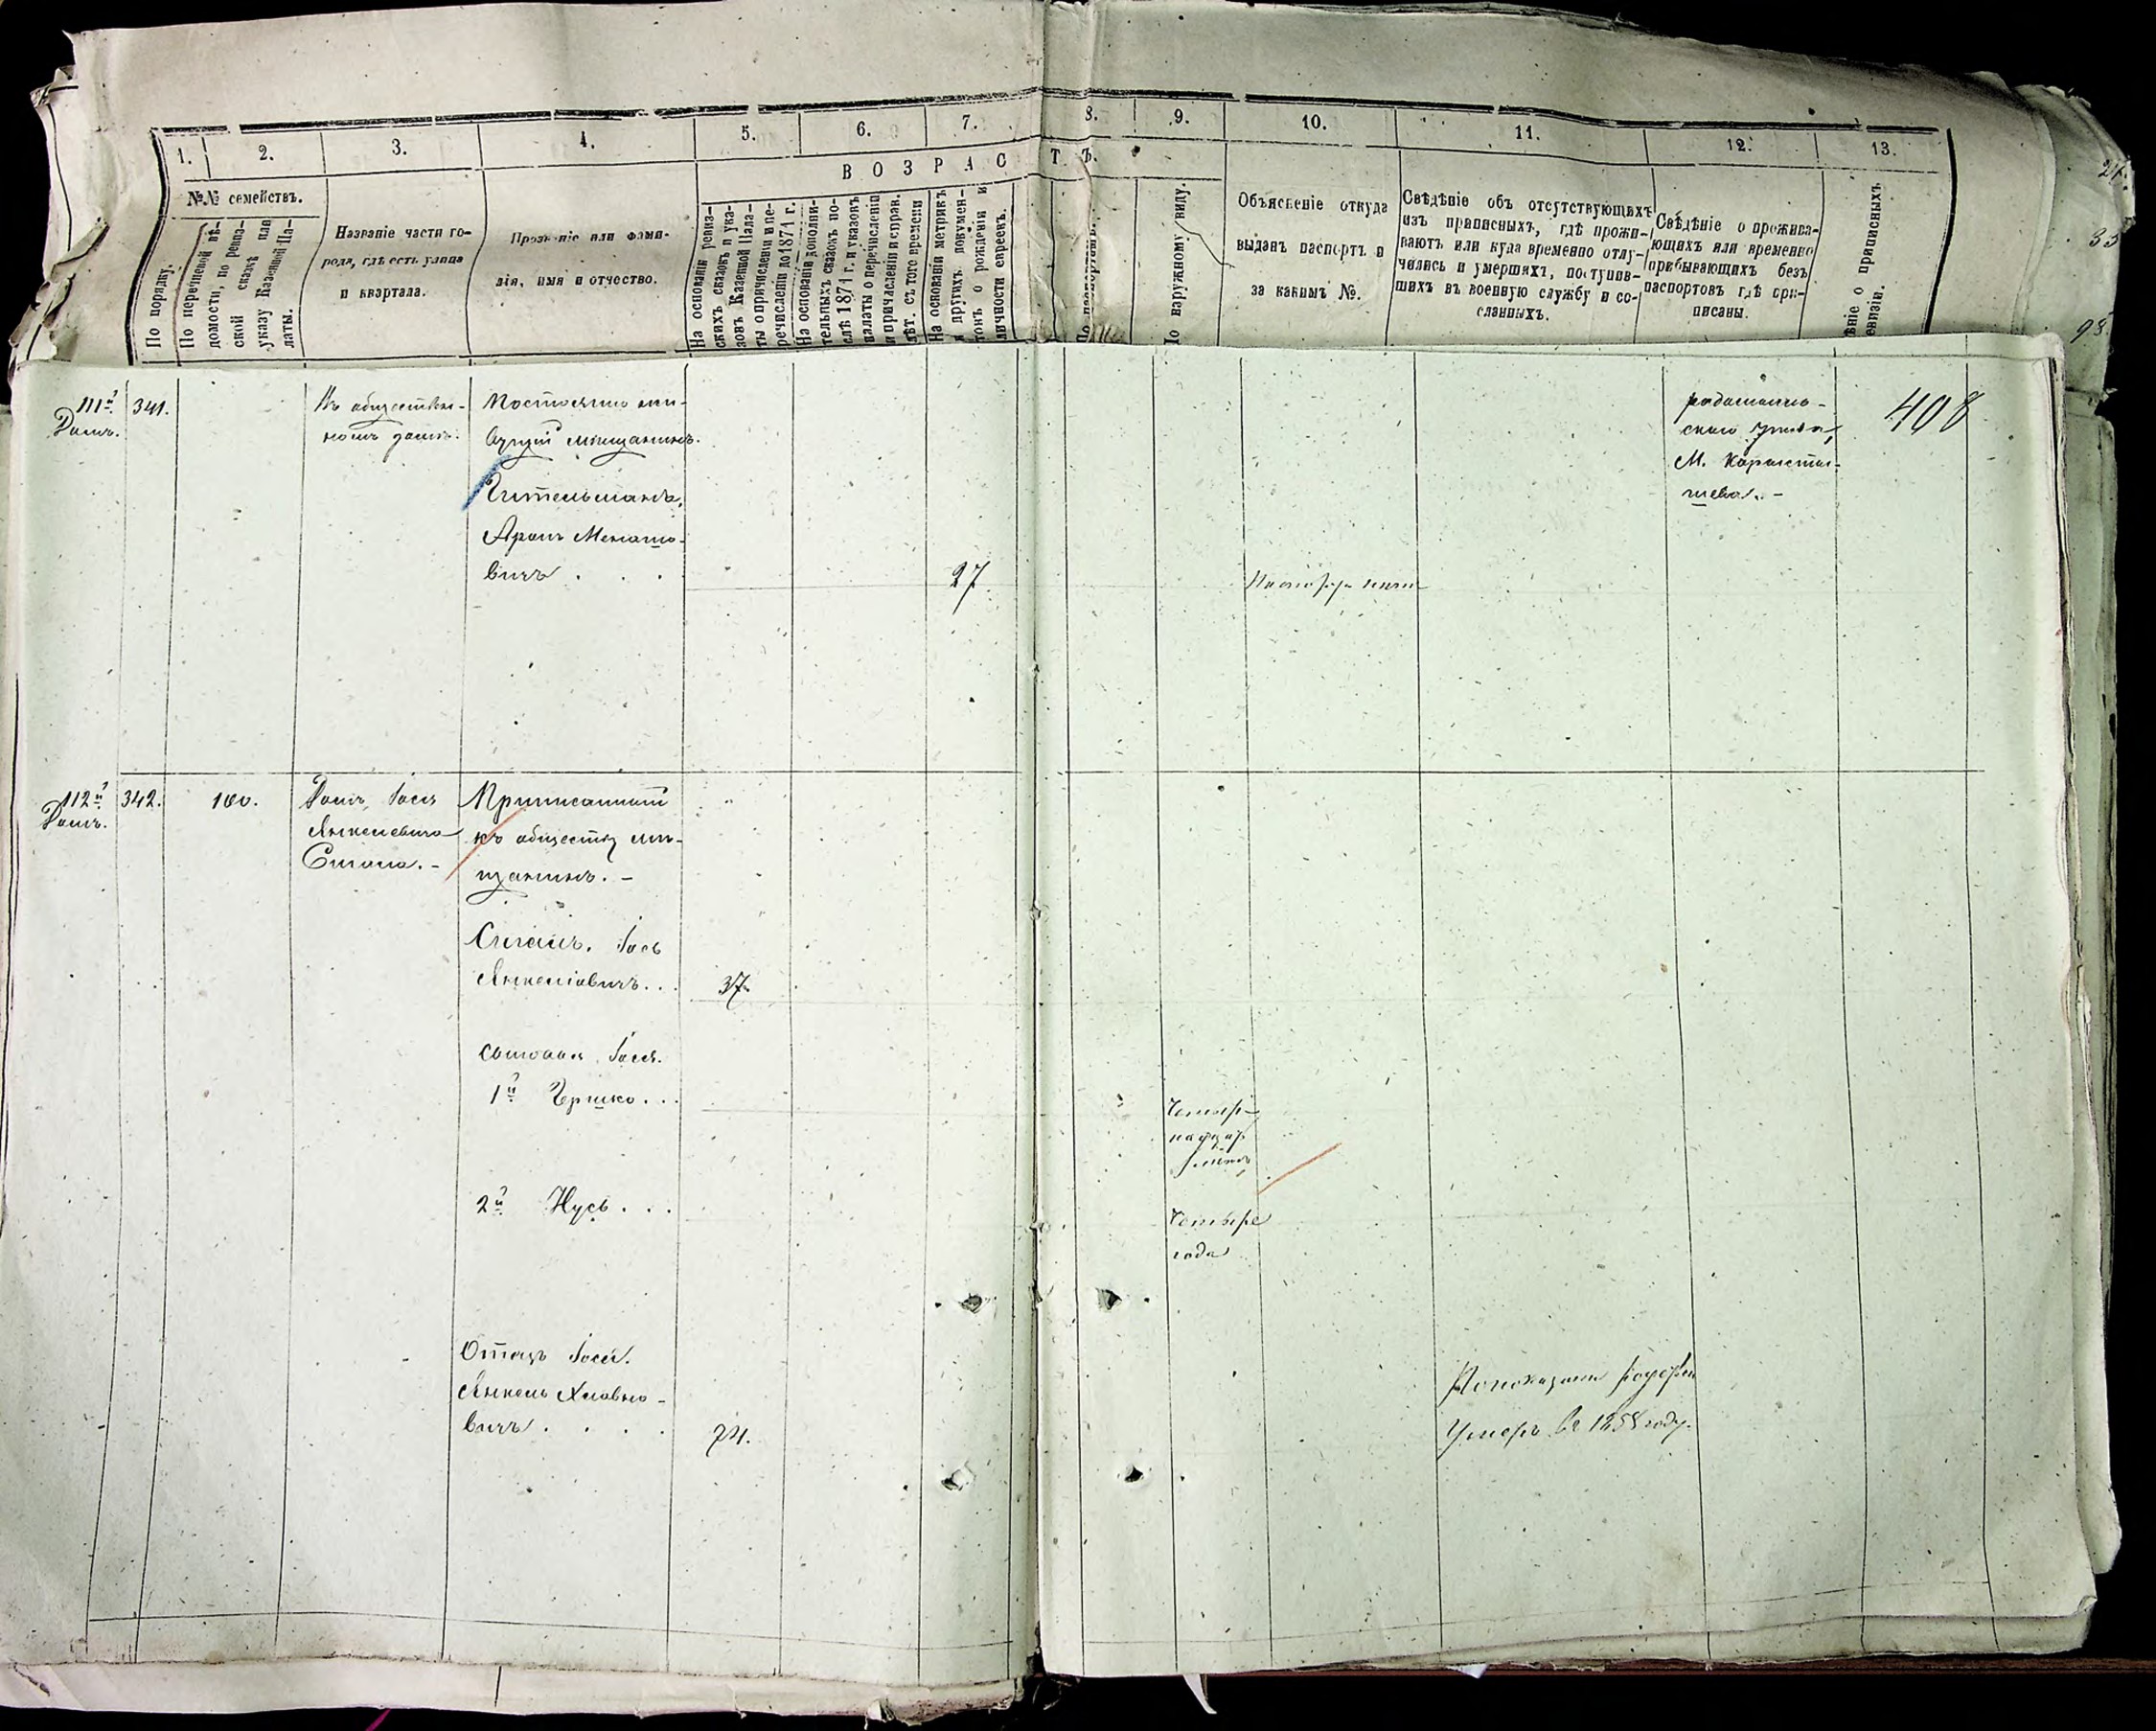 1.
2.
3.
4.
5.
6.
7.
8.
9.
10.
11.
12.
13.
ВОЗРАСТЪ.
№№ семействъ.
По порядку.
По перечневой вѣ-
домости, по ревиз-
ской сказкѣ или
указу Казенной Па-
латы.
Названіе части го-
рода, гдѣ есть улица
и квартала.
Прозваніе или фами-
лія, имя и отчество.
На основаніи ревиз-
скихъ сказокъ и ука-
зовъ Казенной Пала-
ты о причисленіи и пе-
речисленіи до 1874 г.
На основаніи дополни-
тельныхъ сказокъ по-
слѣ 1874 г. и указовъ
палаты о перечисленіи
и причисленіи и справ.
лѣт. съ того времени
На основаніи метрикъ
и другихъ докумен-
товъ о рожденіи и
личности евреекъ.
По наружному виду.
Объясненіе откуда
выданъ паспортъ и
за какимъ №.
Свѣдѣніе объ отсутствующихъ
изъ приписныхъ, гдѣ прожи-
ваютъ или куда временно отлу-
чились и умершихъ, поступив-
шихъ въ военную службу и со-
сланныхъ.
Свѣдѣніе о прожива-
ющихъ или временно
прибывающихъ безъ
паспортовъ гдѣ при-
писаны.
ѣніе о приписныхъ
евизіи.
111й
Домъ.
341.
Въ обществен-
номъ домѣ.
Постоянно жи-
вущій мѣщанинъ.
Гительманъ,
Аронъ Менаше-
вичъ . . .
27
радомысль-
скаго уѣзда,
М. Коросты-
шева. -
408
112й
Домъ.
342.
100.
Домъ Іося
Янкелевича
Сигала. -
Приписанный
къ обществу мѣ-
щанинъ. -
Сигалъ. Іось
Янкеліовичъ. . .
37
сыновья Іося.
1й Гершко. . .
Четыр-
надцать
лѣтъ
2й Нусь. . .
Четыре
года
Отецъ Іося.
Янкель Хлавно-
вичъ . . . .
74.
Умеръ въ 1858 году.